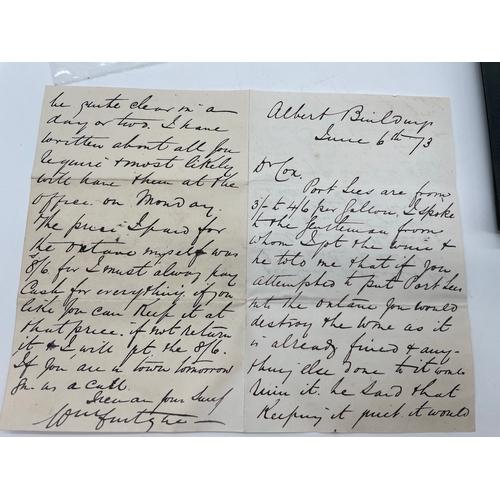 Albert Buildings
June 6th /73
Dr Cox,
Port Lees are from
3/- to 4/6 per Gallon, I spoke
to the Gentleman from
whom I got the wine &
he told me that if you
attempted to put Port Lees
into the octane you would
destroy the wine as it
is already fined & any-
thing else done to it would
ruin it. he said that
Keeping it quiet it would
be quite clear in a
day or two. I have
written about all you
require & most likely
will have them at the
office on Monday.
The price I paid for
the octane myself was
8/6 for I must always pay
Cash for everything, if you
like you can keep it at
that price. if not return
it & I will pt. the 8/6.
If you are in town tomorrow
give us a call